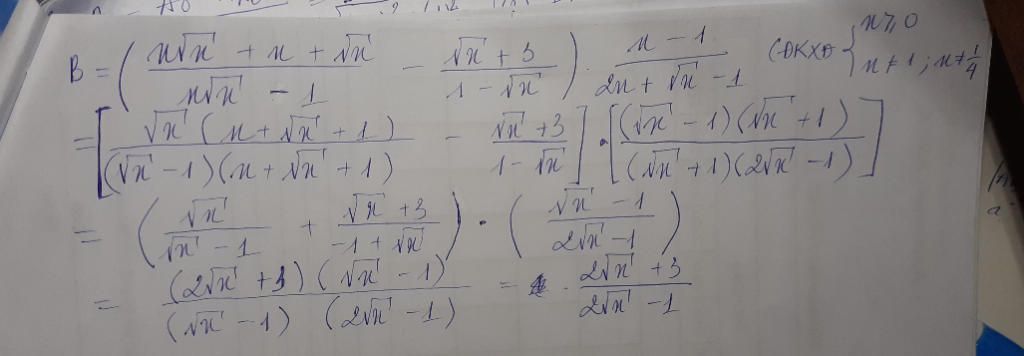 B = ( (x√x + x + √x)/(x√x - 1) - (√x + 3)/(1 - √x) ) . (x - 1)/(2x + √x - 1) (ĐKXĐ { x ≥ 0 ; x ≠ 1 ; x ≠ 1/4
= [ √x (x + √x + 1)/((√x - 1)(x + √x + 1)) - (√x + 3)/(1 - √x) ] . [ (√x - 1)(√x + 1)/((√x + 1)(2√x - 1)) ]
= ( √x/(√x - 1) + (√x + 3)/(-1 + √x) ) . ( (√x - 1)/(2√x - 1) )
= (2√x + 3)(√x - 1)/((√x - 1)(2√x - 1)) = (2√x + 3)/(2√x - 1)